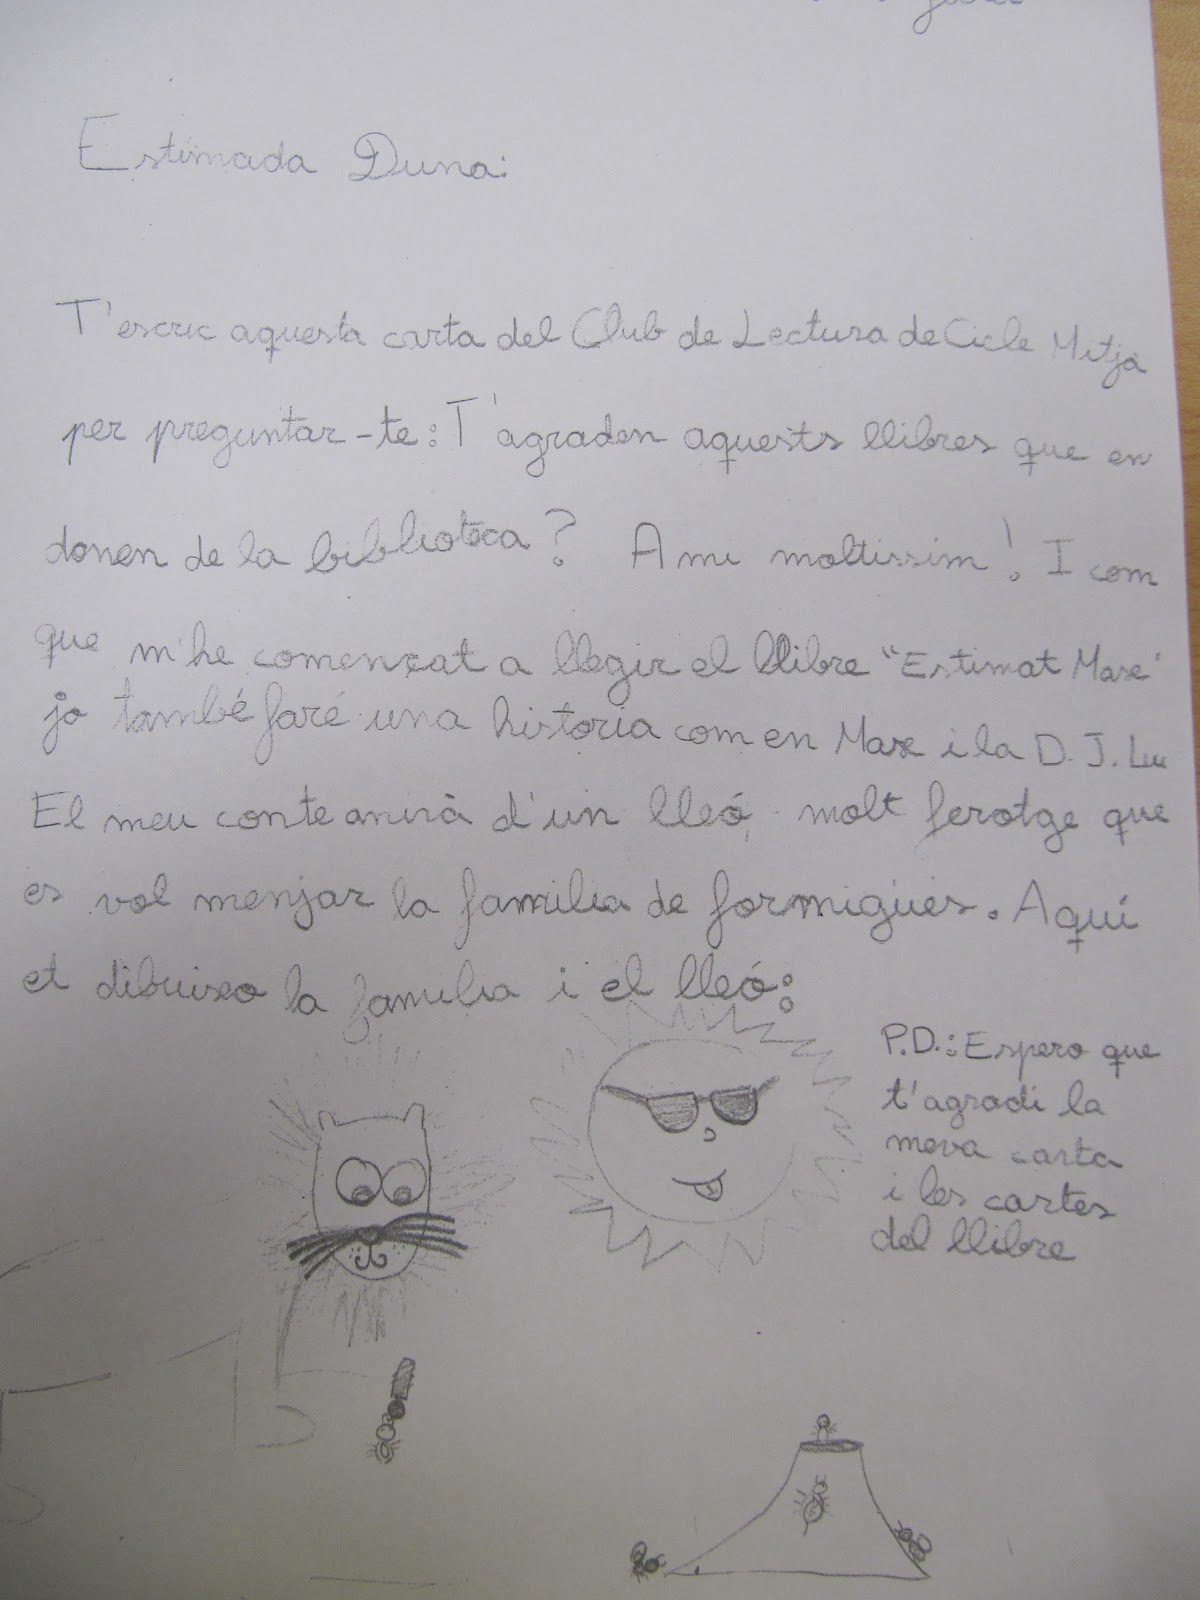 Estimada Duna:
T'escric aquesta carta del Club de Lectura de Cicle Mitjà
per preguntar-te: T'agraden aquests llibres que en
donen de la biblioteca? A mi moltissim! I com
que m'he començat a llegir el llibre "Estimat Max"
jo també faré una historia com en Max i la D. J. Lu
El meu conte anirà d'un lleó molt ferotge que
es vol menjar la familia de formigues. Aquí
et dibuixo la familia i el lleó:
P.D.: Espero que
t'agradi la
meva carta
i les cartes
del llibre